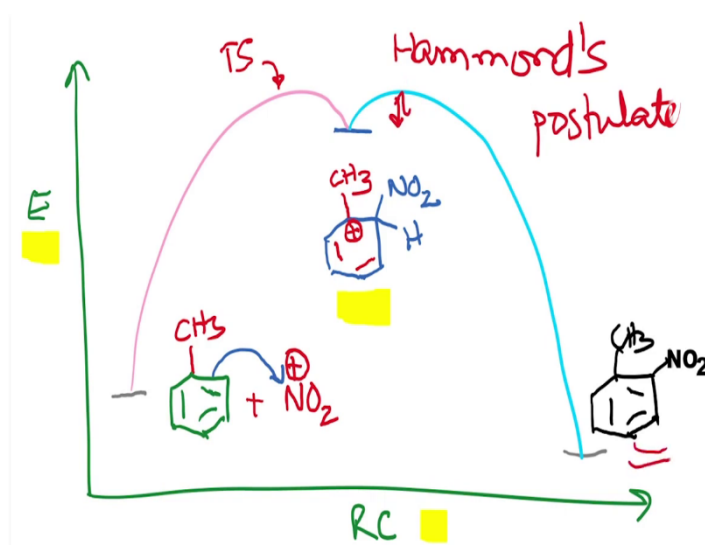 TS
Hammond's
postulate
CH3
NO2
⊕
H
E
CH3
⊕
+ NO2
CH3
NO2
RC